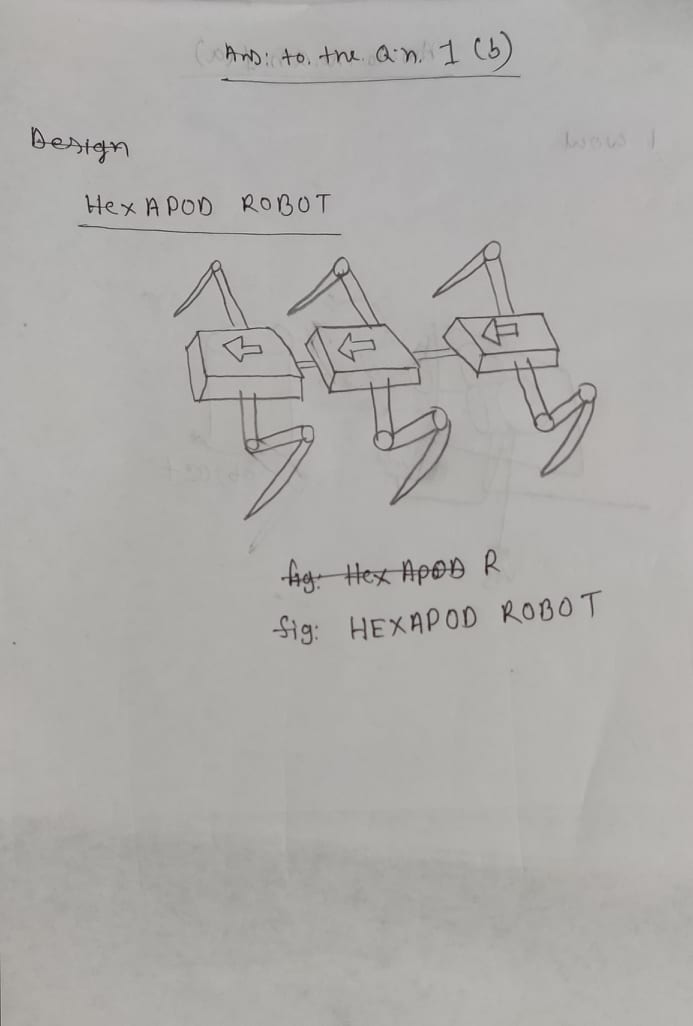 Ans: to. the. Q.n. 1 (b)
Design
HexAPOD ROBOT
fig: Hex APOD R
fig: HEXAPOD ROBOT